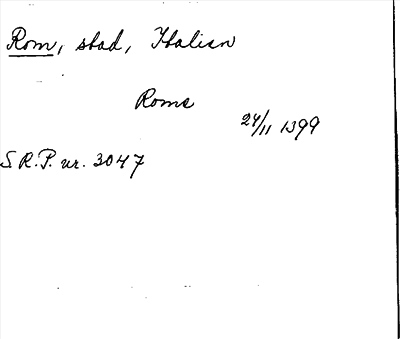 Rom, stad, Italien
Rome
24/11 1399
S R.P. nr. 3047